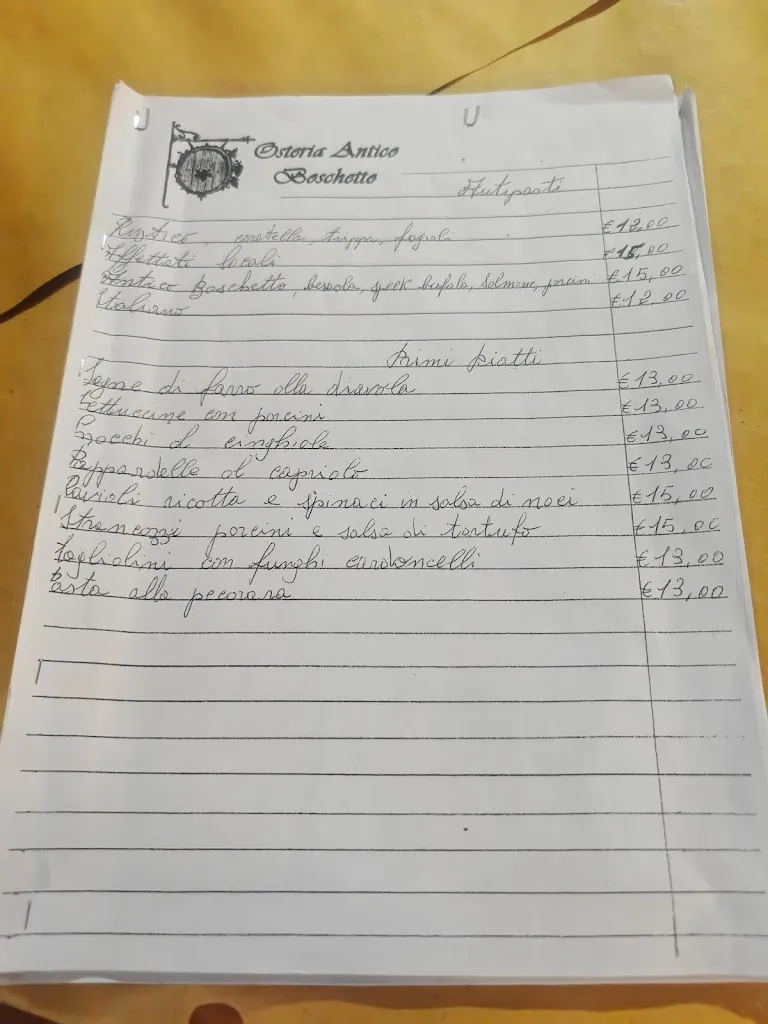 Osteria Antico
Boschetto
Antipasti
Rustico, coratella, trippa, fagioli €12,00
Affettati locali €15,00
Antico Boschetto, bresaola, speck bufala, salmone, porcini €15,00
Italiano €12,00
Primi piatti
Sagne di farro alla diavola €13,00
Fettuccine con porcini €13,00
Gnocchi al cinghiale €13,00
Pappardelle al capriolo €13,00
Ravioli ricotta e spinaci in salsa di noci €15,00
Strancozzi porcini e salsa di tartufo €15,00
Tagliolini con funghi cardoncelli €13,00
Pasta alla pecorara €13,00